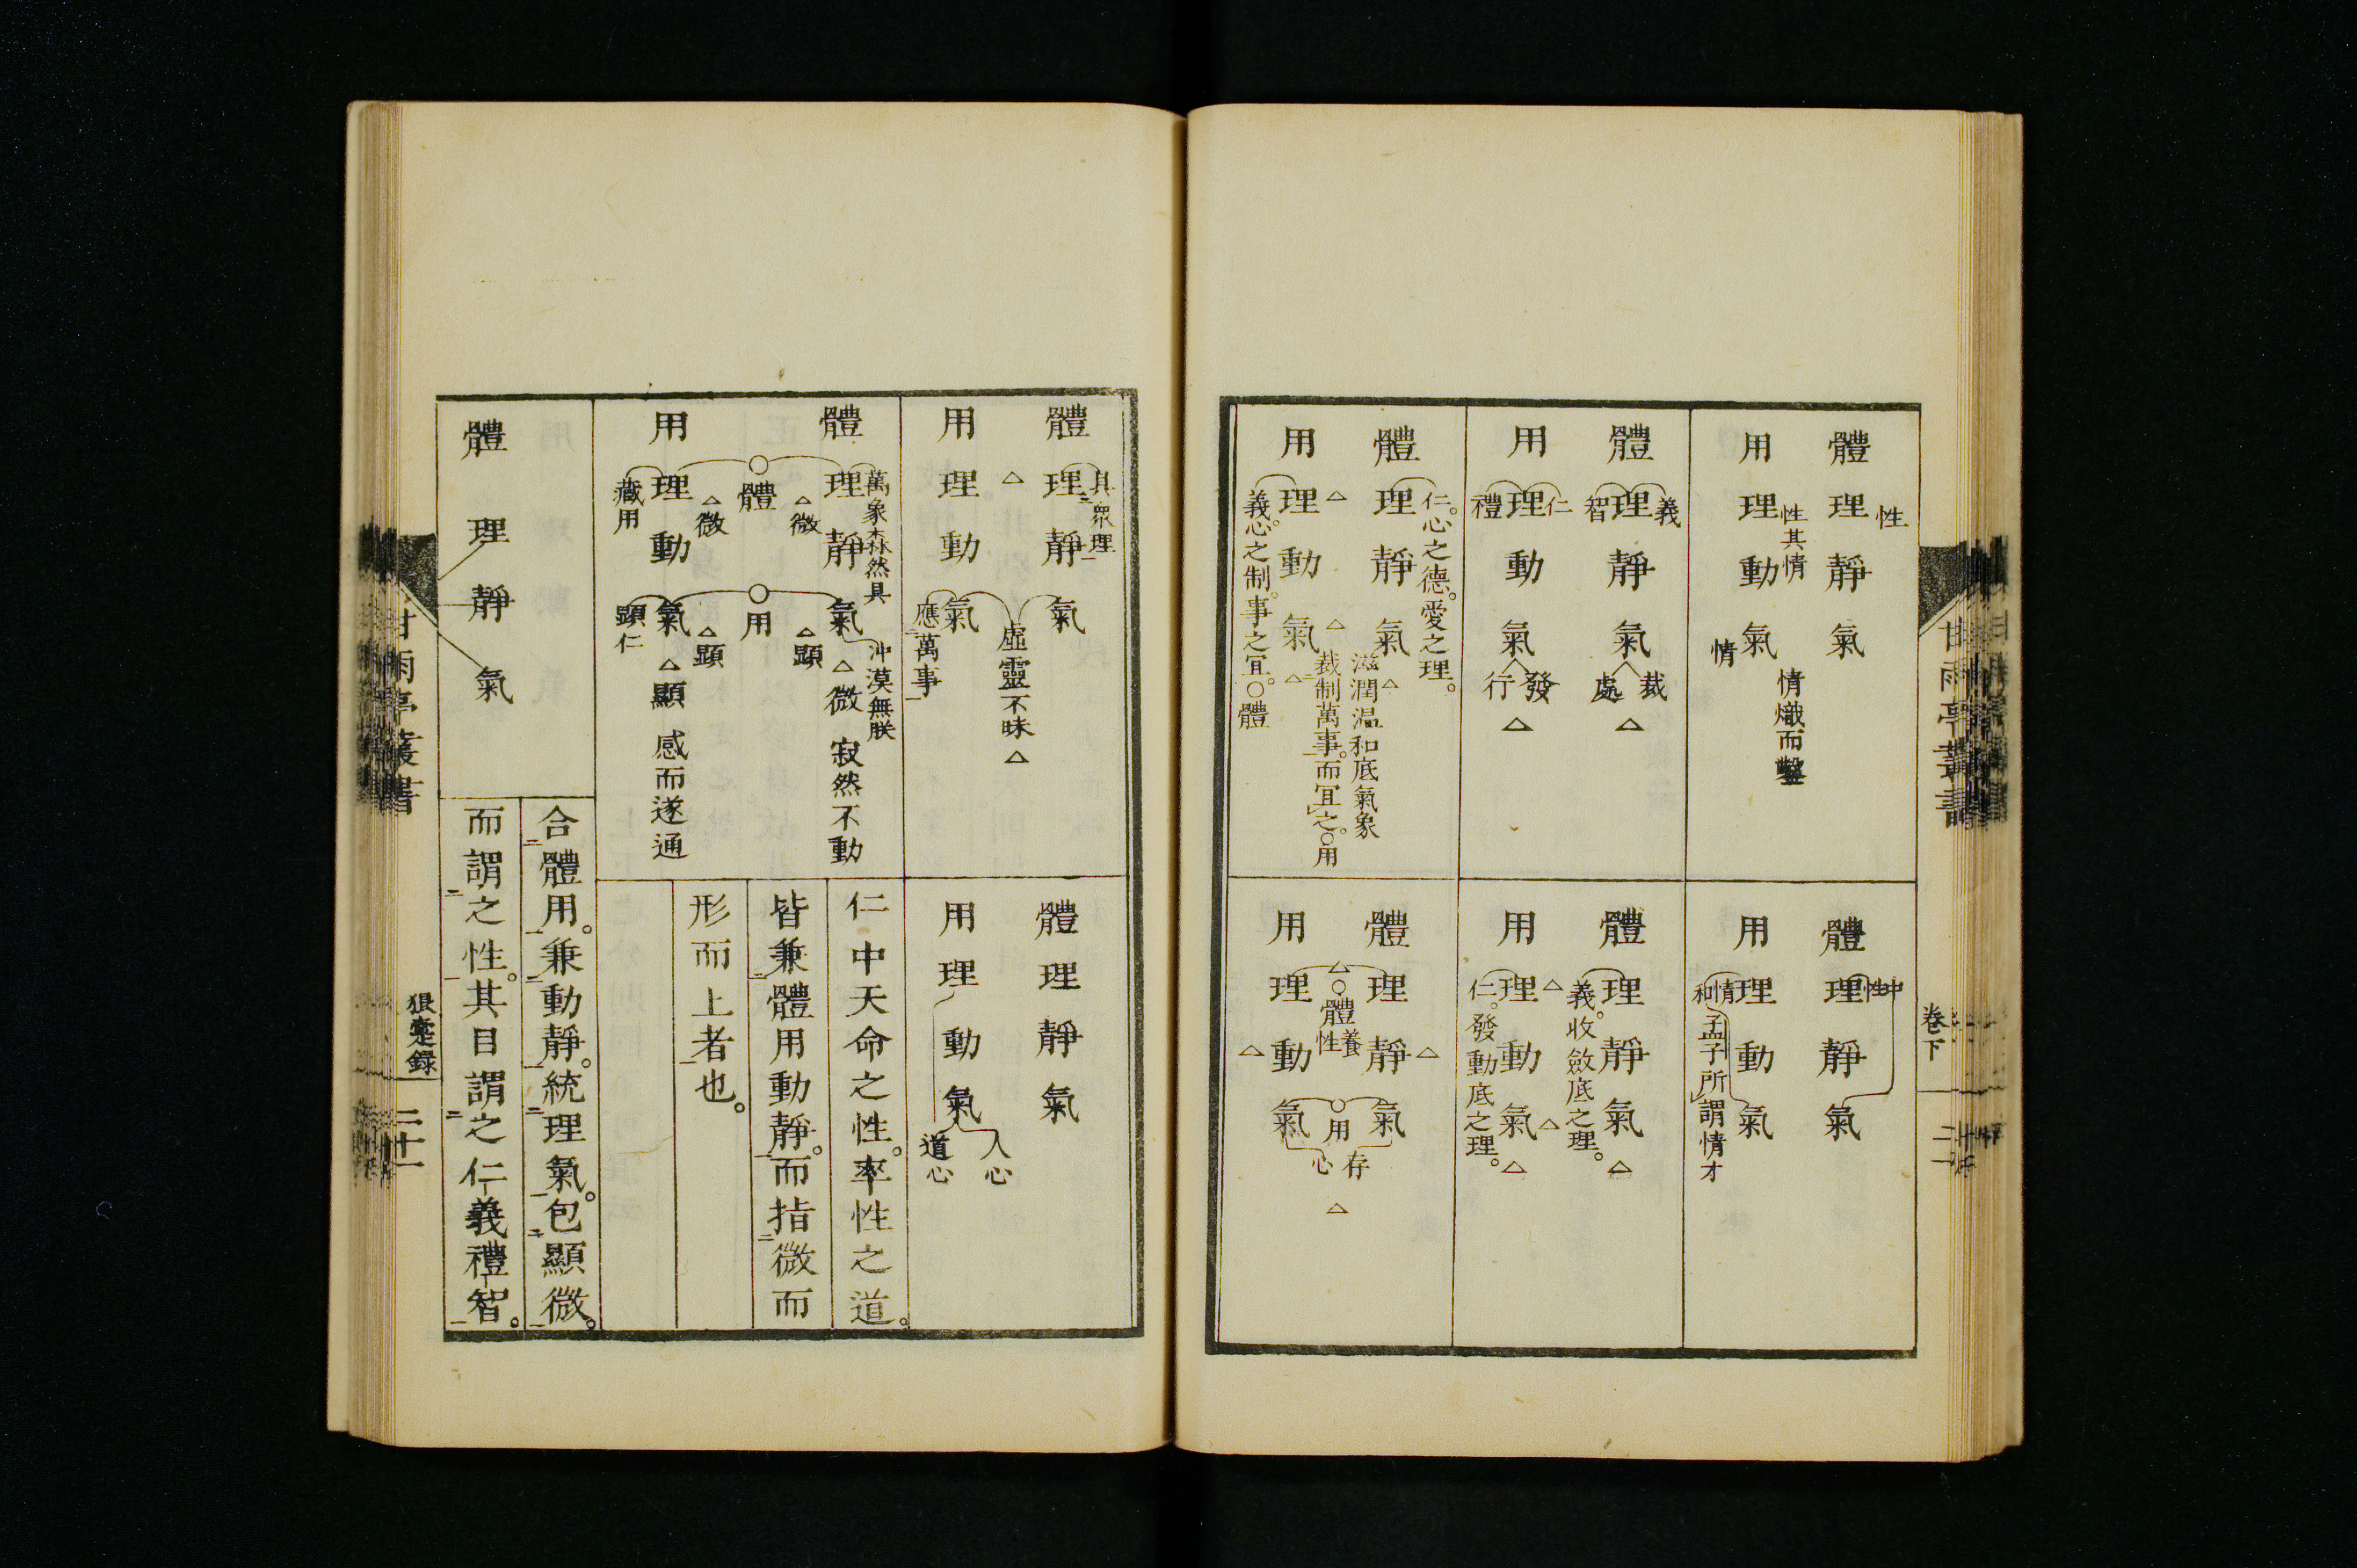 體理靜氣
性
用理動氣
性其情
情
情熾而鑿
體理靜氣
中
性
用理動氣
情
和
孟子所謂情才
體理靜氣
義
智
裁
處
△
用理動氣
仁
禮
發
行
△
體理靜氣
義。收斂底之理。
△
用理動氣
△
△
仁。發動底之理。
△
體理靜氣
仁。心之德。愛之理。
△
滋潤温和底氣象
用理動氣
△
△
△
裁制萬事。而冝之。○用
義。心之制。事之冝。○體
體理靜氣
△
用理動氣
△
△
○體
養性
○用
存心
△
卷下
甘雨亭叢書
體理靜氣
具衆理
△
虛靈不昧△
用理動氣
應萬事
體理靜氣
用理動氣
人心
道心
體理靜氣
萬象森然具
沖漠無朕
△微
寂然不動
△微
△顕
○體
○用
△微
△顕
用理動氣
藏用
顕仁
△顯
感而遂通
仁中天命之性。率性之道。
皆兼體用動靜。而指微而
形而上者也。
體理靜氣
合體用。兼動靜。統理氣。包顯微。
而謂之性。其目謂之仁義禮智。
甘雨亭叢書
狼疐錄
二十一